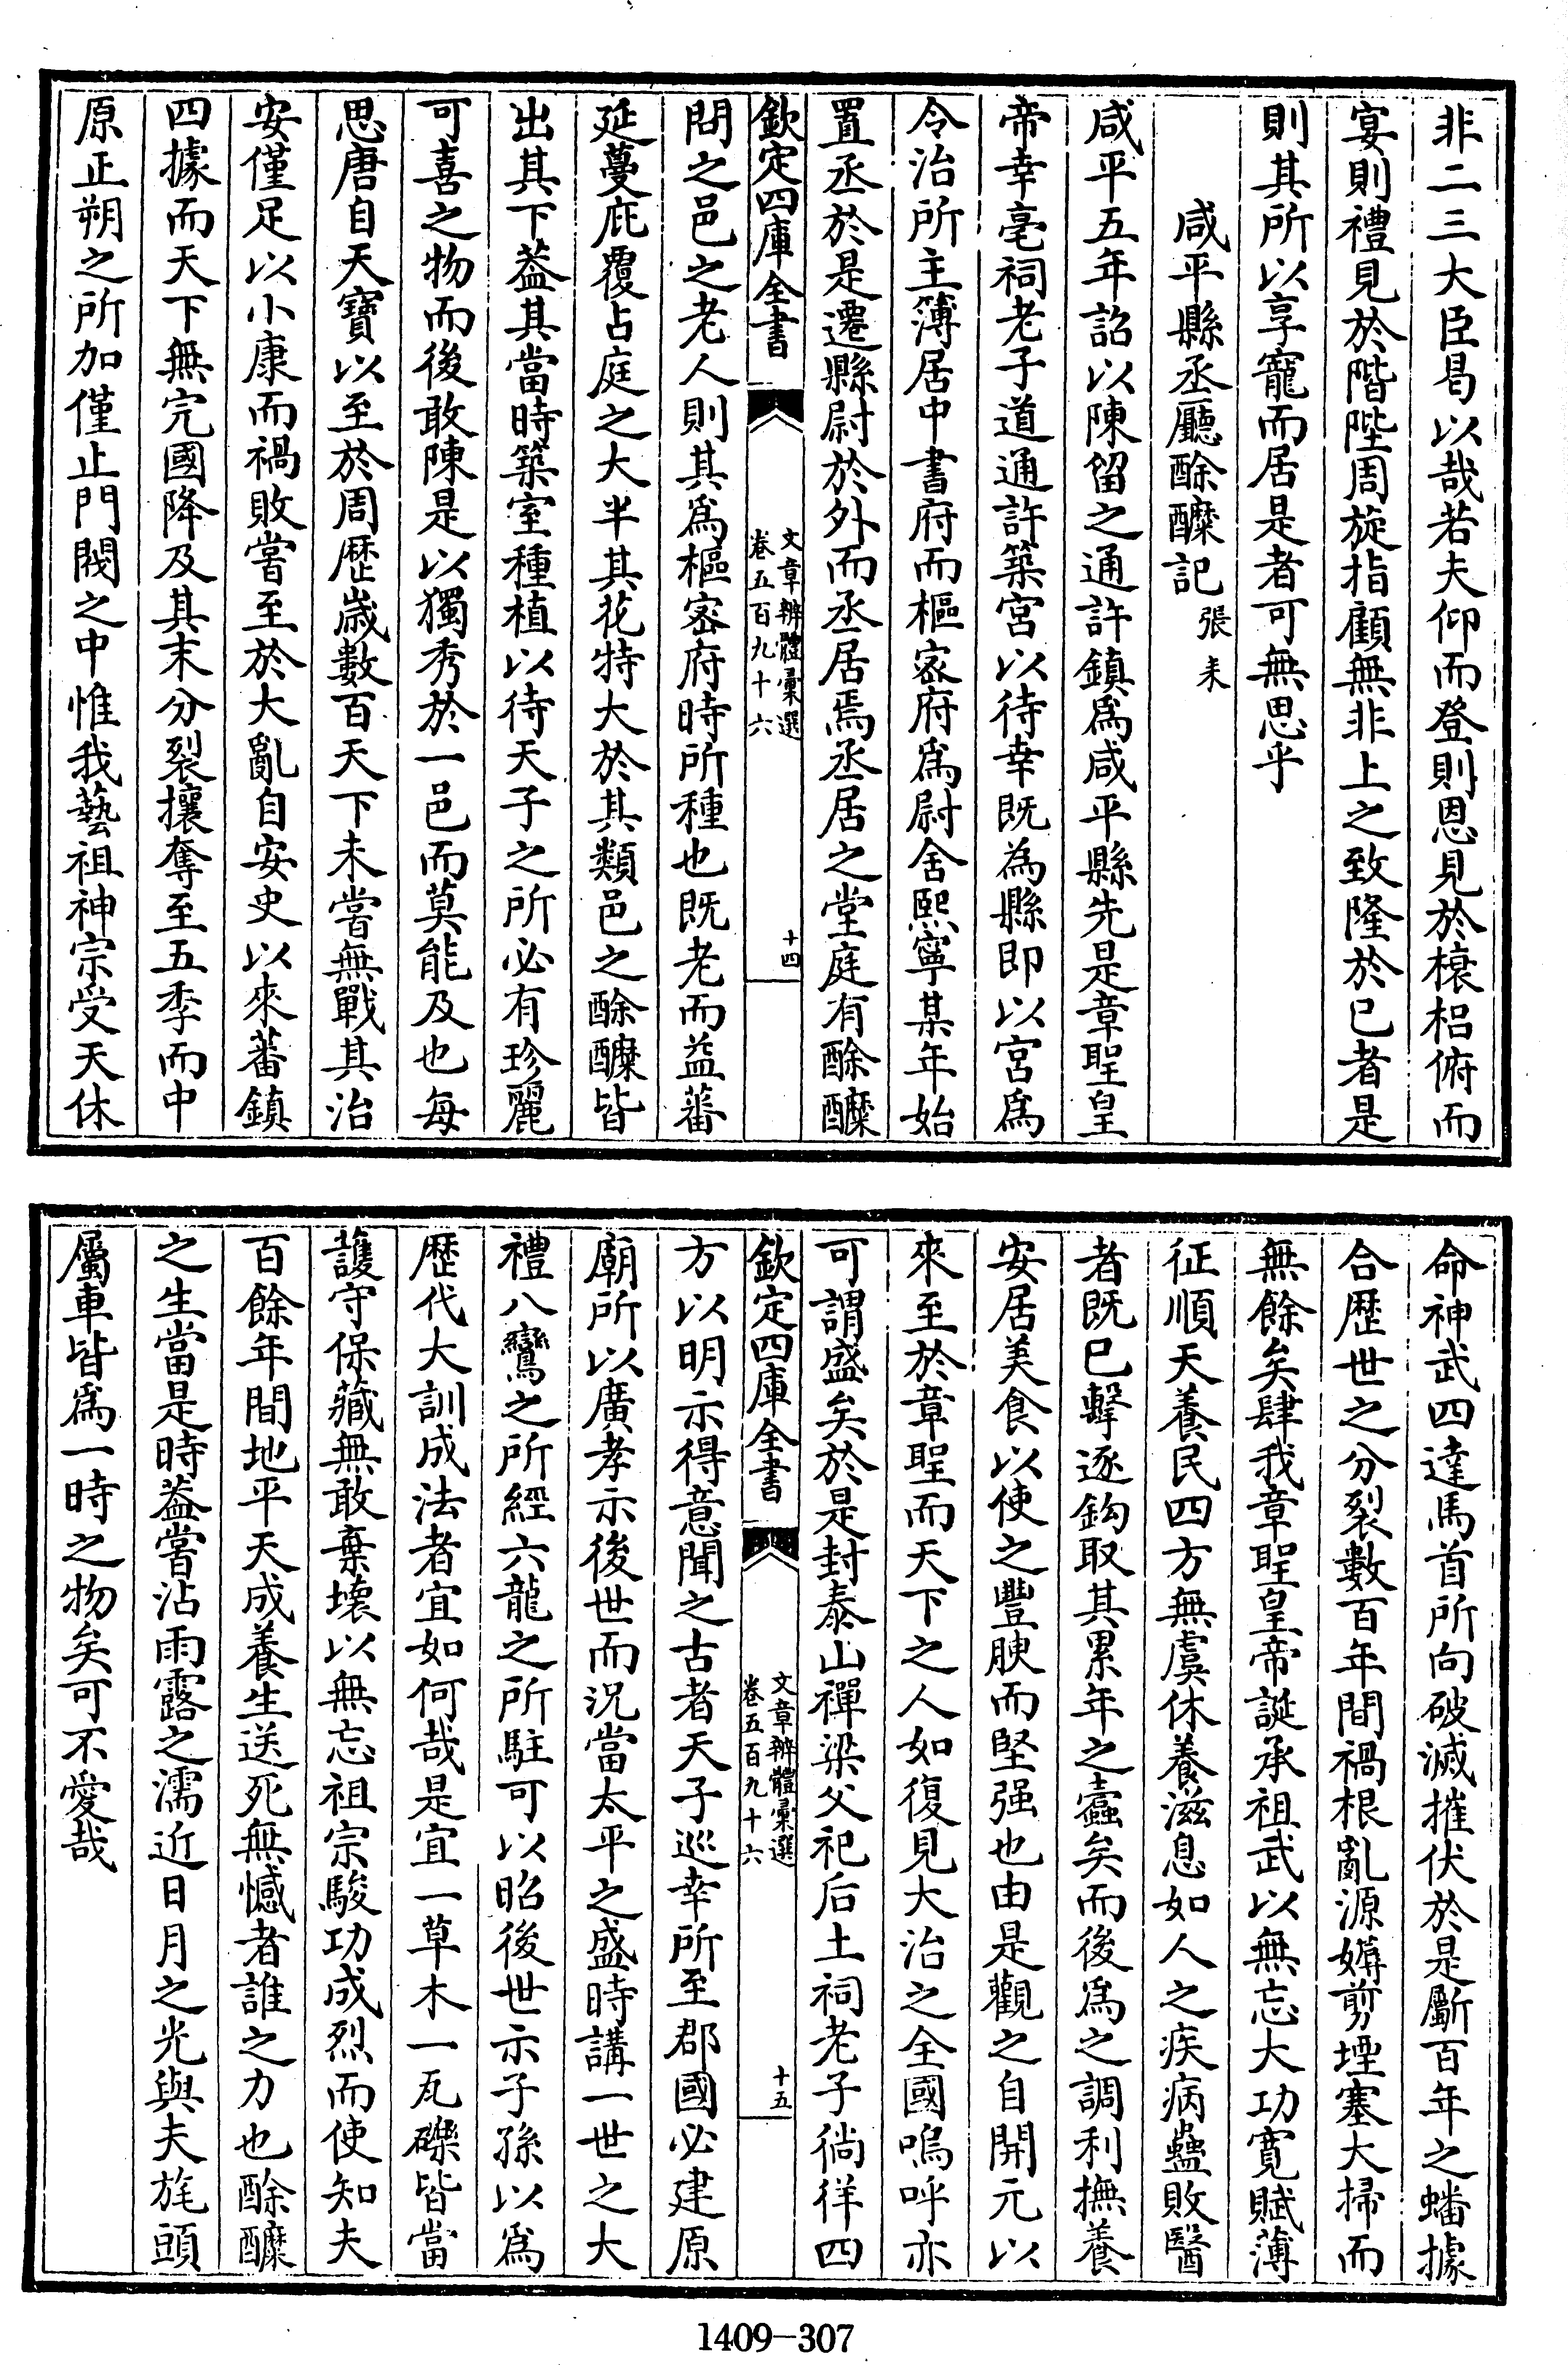 非二三大臣曷以哉若夫仰而登則恩見於榱梠俯而
宴則禮見於階陛周旋指顧無非上之致隆於已者是
則其所以享寵而居是者可無思乎
咸平縣丞廳酴醾記 張耒
咸平五年詔以陳留之通許鎮爲咸平縣先是章聖皇
帝幸亳祠老子道通許築宮以待幸既為縣即以宮爲
令治所主簿居中書府而樞密府爲尉舍熙寧某年始
置丞於是遷縣尉於外而丞居焉丞居之堂庭有酴醾
欽定四庫全書
文章辨體彙選
卷五百九十六
十四
問之邑之老人則其爲樞密府時所種也既老而益蕃
延蔓庇覆占庭之大半其花特大於其類邑之酴醾皆
出其下葢其當時築室種植以待天子之所必有珍麗
可喜之物而後敢陳是以獨秀於一邑而莫能及也每
思唐自天寶以至於周歴歳數百天下未嘗無戰其治
安僅足以小康而禍敗嘗至於大亂自安史以來蕃鎮
四據而天下無完國降及其末分裂攘奪至五季而中
原正朔之所加僅止門閥之中惟我藝祖神宗受天休
命神武四達馬首所向破滅摧伏於是斸百年之蟠據
合歴世之分裂數百年間禍根亂源媾剪堙塞大掃而
無餘矣肆我章聖皇帝誕承祖武以無忘大功寛賦薄
征順天養民四方無虞休養滋息如人之疾病蠱敗醫
者既已擊逐鈎取其累年之蠧矣而後爲之調利撫養
安居美食以使之豐腴而堅强也由是觀之自開元以
來至於章聖而天下之人如復見大治之全國嗚呼亦
可謂盛矣於是封泰山禪梁父祀后土祠老子徜徉四
欽定四庫全書
文章辨體彙選
卷五百九十六
十五
方以明示得意聞之古者天子巡幸所至郡國必建原
廟所以廣孝示後世而況當太平之盛時講一世之大
禮八鸞之所經六龍之所駐可以昭後世示子孫以爲
歴代大訓成法者宜如何哉是宜一草木一瓦礫皆當
護守保藏無敢棄壊以無忘祖宗駿功成烈而使知夫
百餘年間地平天成養生送死無憾者誰之力也酴醾
之生當是時葢嘗沾雨露之濡近日月之光與夫旄頭
屬車皆爲一時之物矣可不愛哉
1409-307